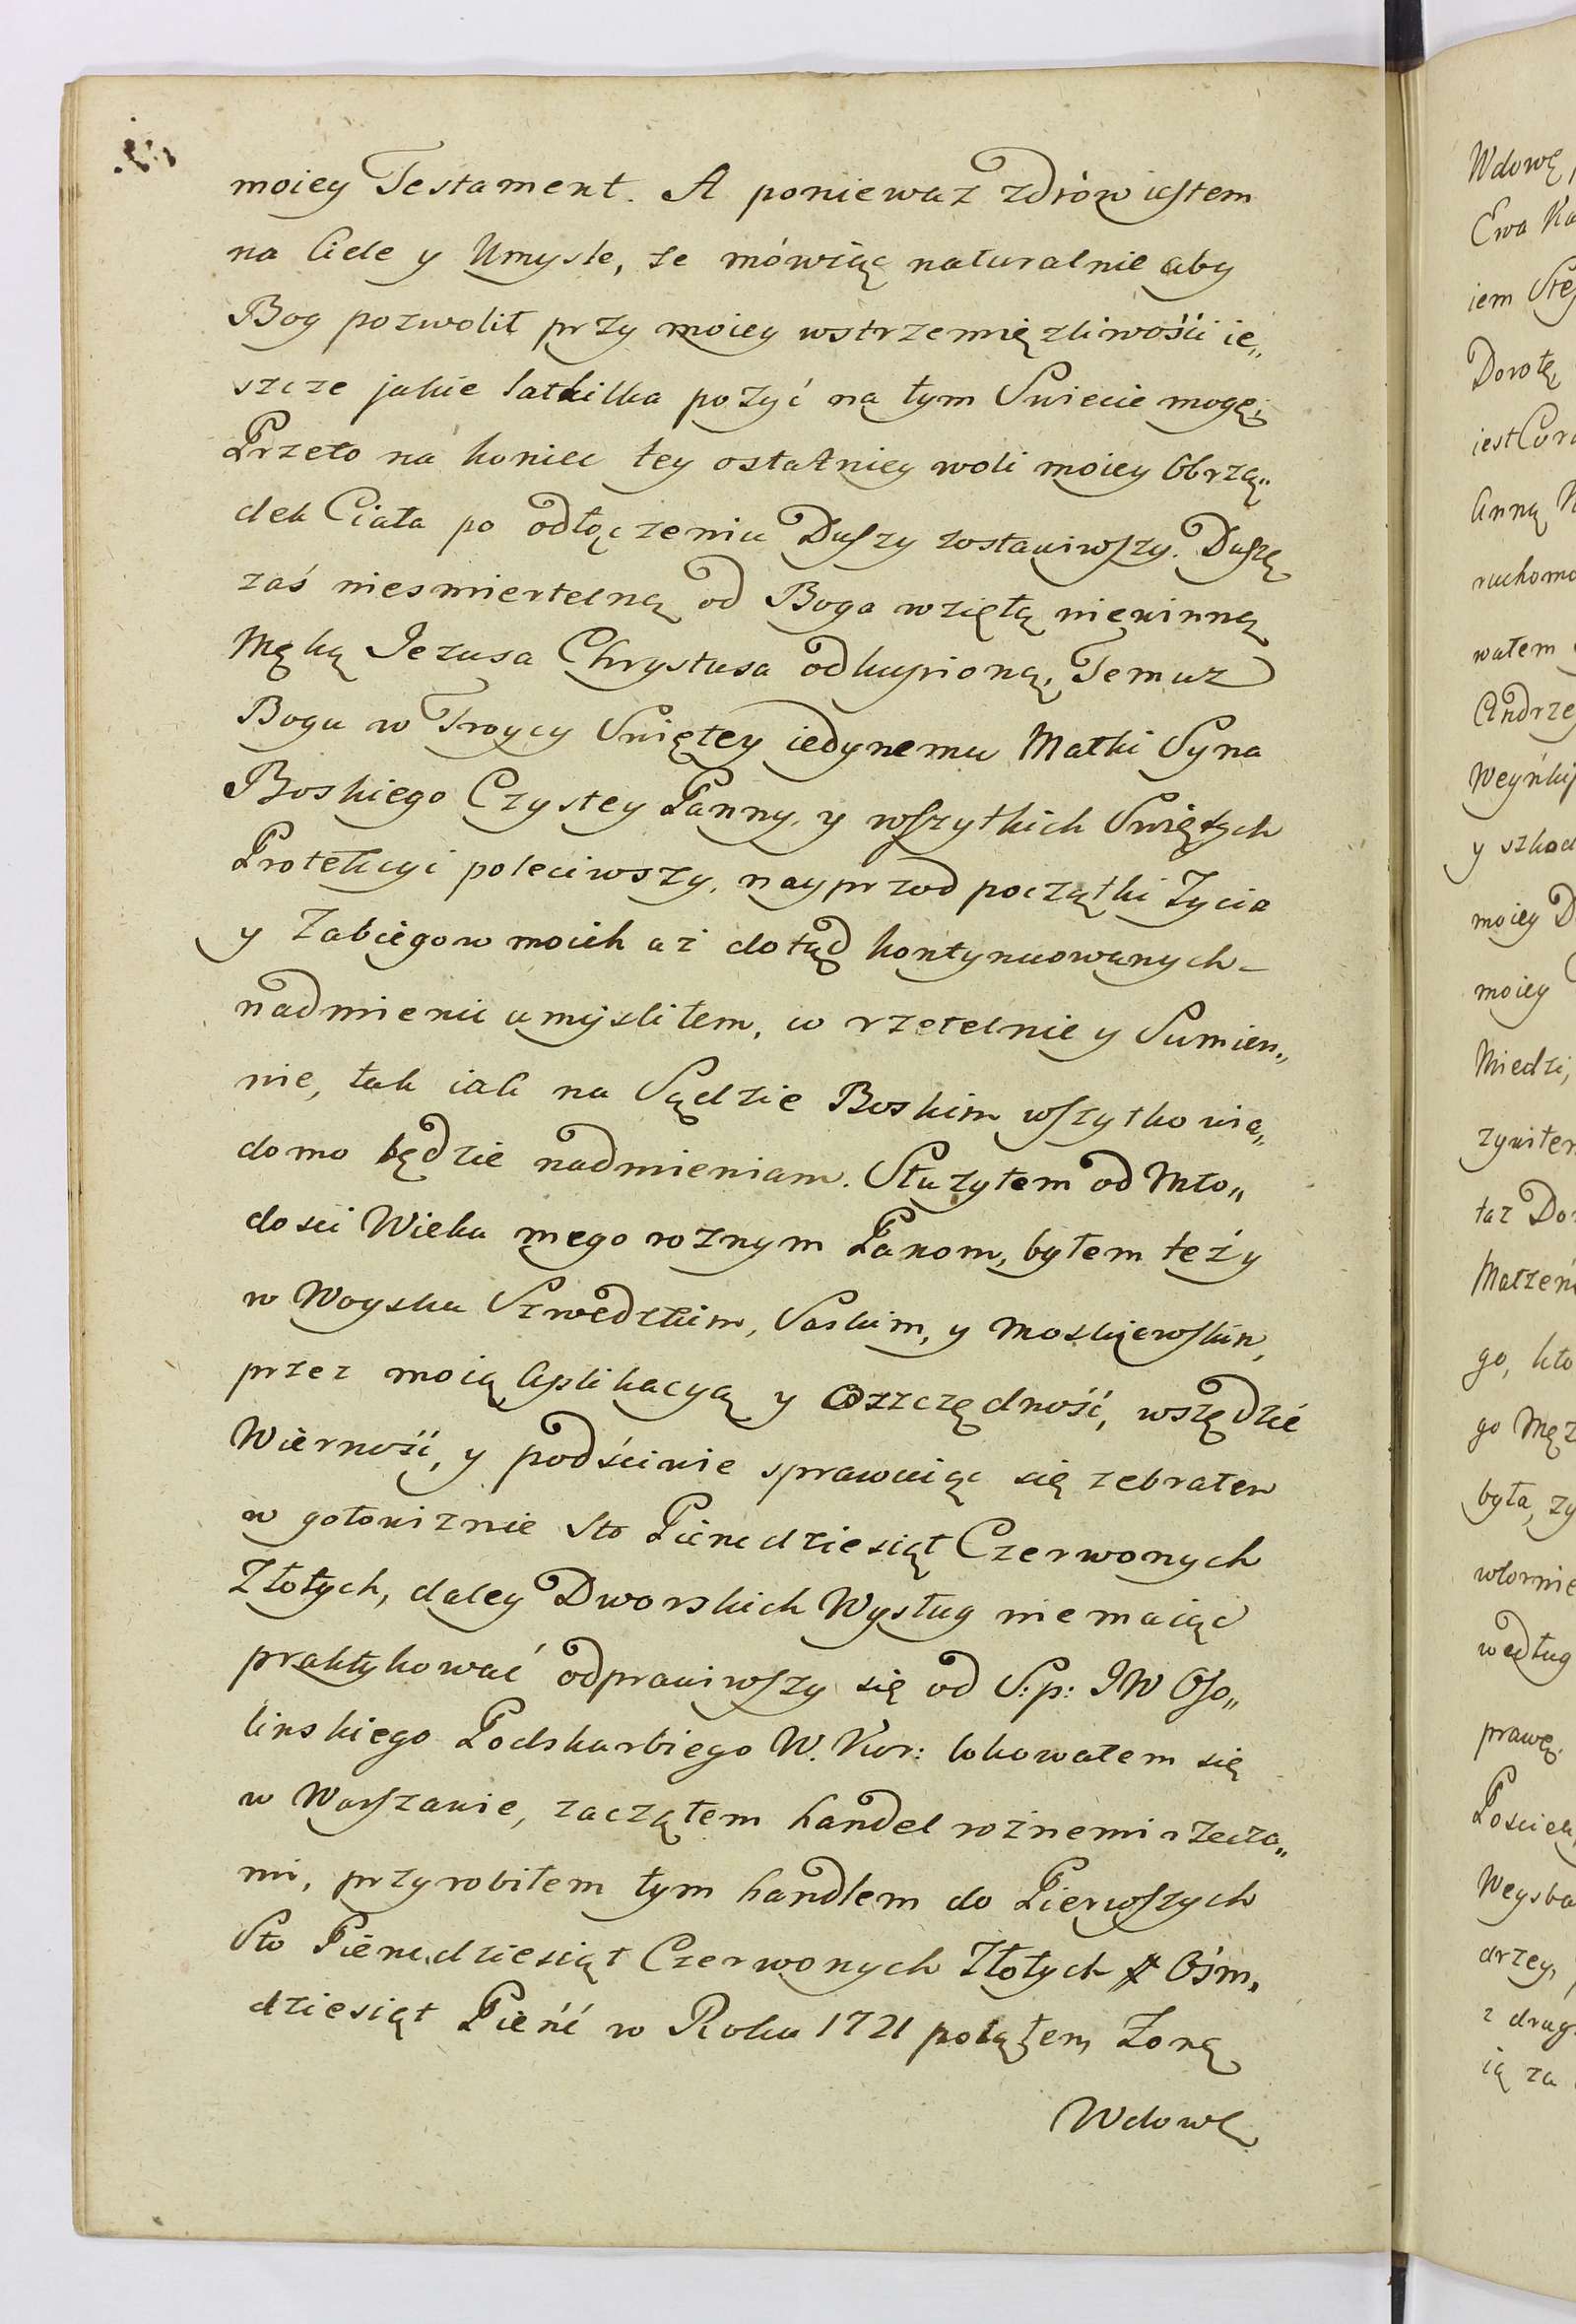 moiey Testament. A ponieważ zdrów iestem
na Ciele y Umyśle, że mówiąc naturalnie aby
Bog pozwolił przy moiey wstrzemięzliwości ie„
szcze jakie lat kilka pożyć na tym Swiecie mogę;
Przeto na koniec tey ostatniey woli moiey Obrzą„
dek Ciała po odłączeniu Duszy zostawiwszy. Duszę
zaś niesmiertelną od Boga wziętą niewinną
Męką Jezusa Chrystusa odkupioną, Temuż
Bogu w Troycy Swiętey iedynemu Matki Syna
Boskiego Czystey Panny, y wszytkich Swiętych
Protekcyi poleciwszy, nayprzod początki Zycia
y Zabiegow moich aż dotąd kontynuowanych
nadmienić umyśliłem, co rzetelnie y Sumien„
nie, tak iak na Sądzie Boskim wszytko wia„
domo będzie nadmieniam. Służyłem od Mło„
dosci Wieku mego rożnym Panom, byłem też y
w Woysku Szwedzkim, Saskim, y Moskiewskim,
przez moią Aplikacyą y Oszczędność, wszędzie
Wierność, y podściwie sprawuiąc się zebrałem
w gotowiznie Sto Piendziesiąt Czerwonych
Złotych, daley Dworskich Wysług niemaiąc
praktykować odprawiwszy się od S: p: JW Osso„
linskiego Podskarbiego W. Kor: lokowałem się
w Warszawie, zacząłem handel rożnemi rzecza„
mi, przyrobiłem tym handlem do Pierwszych
Sto Piendziesiąt Czerwonych Złotych Ośm„
dziesiąt Pieńć w Roku 1721 poiąłem Zonę
Wdowę
Wdowę,
Ewa
iem
Dorotę
iest
Anną
ruchomo
wałem
Andrze
y szkod
moiey D
moiey
Miedzi,
taż Do
Małzeń
go, kto
go Męż
była, ży
według
prawę.
Pościel
drzey,
z drug
ią za